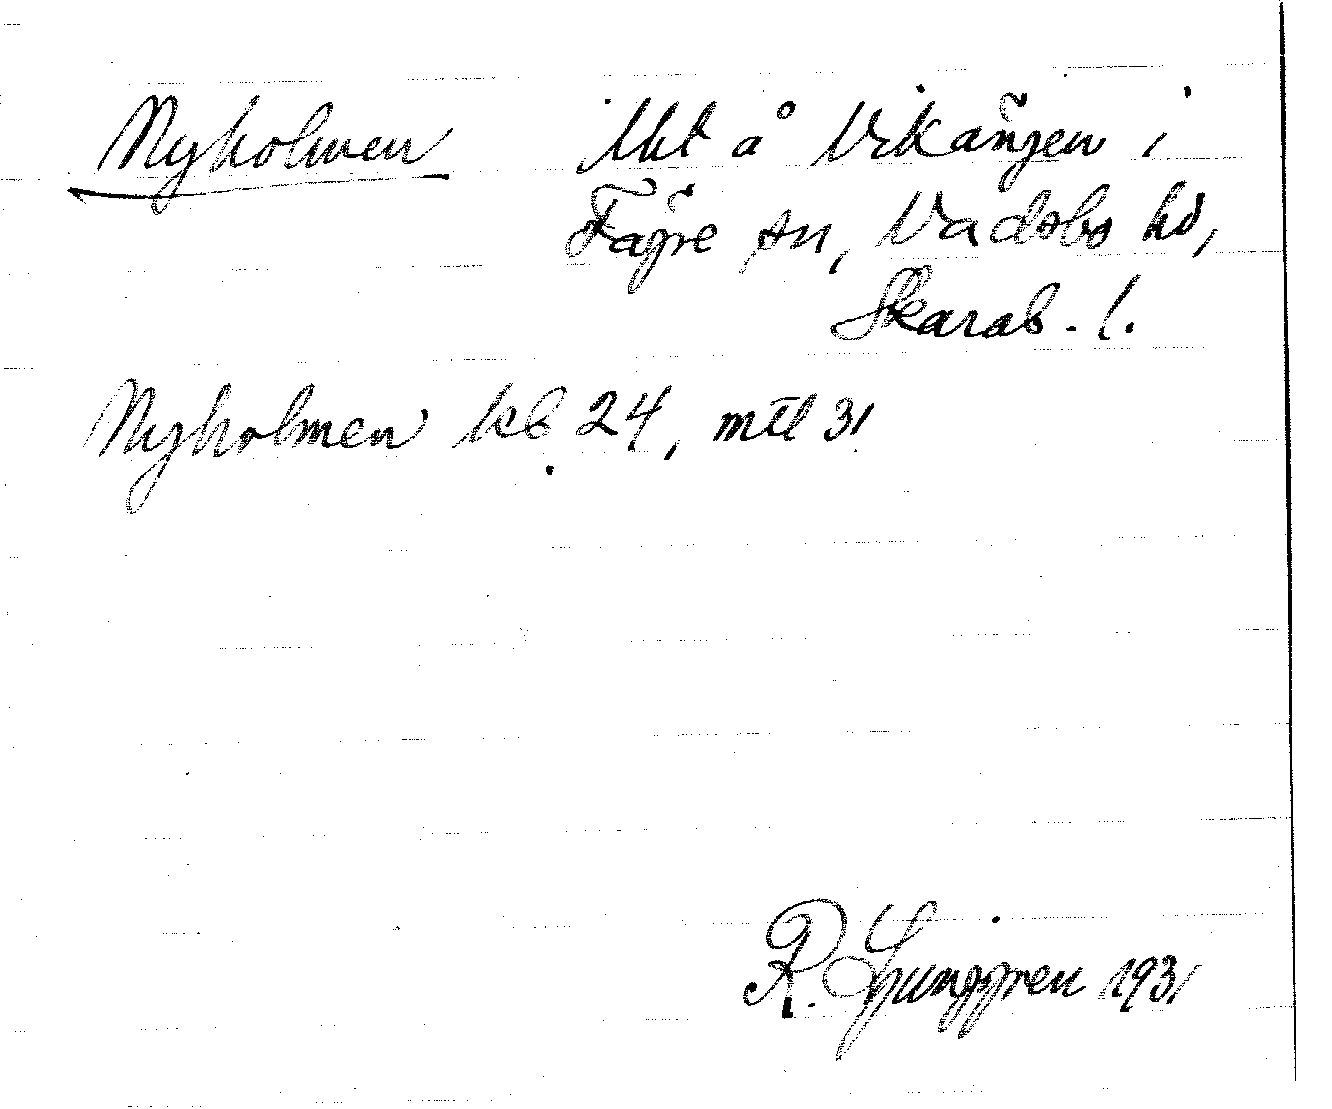 Nyholmen Utt å Vikängen i
Fägre sn, Vadsbo hd,
Skarab. l.
Nyholmen kb 24, mtl 31
R. Ljunggren 1931